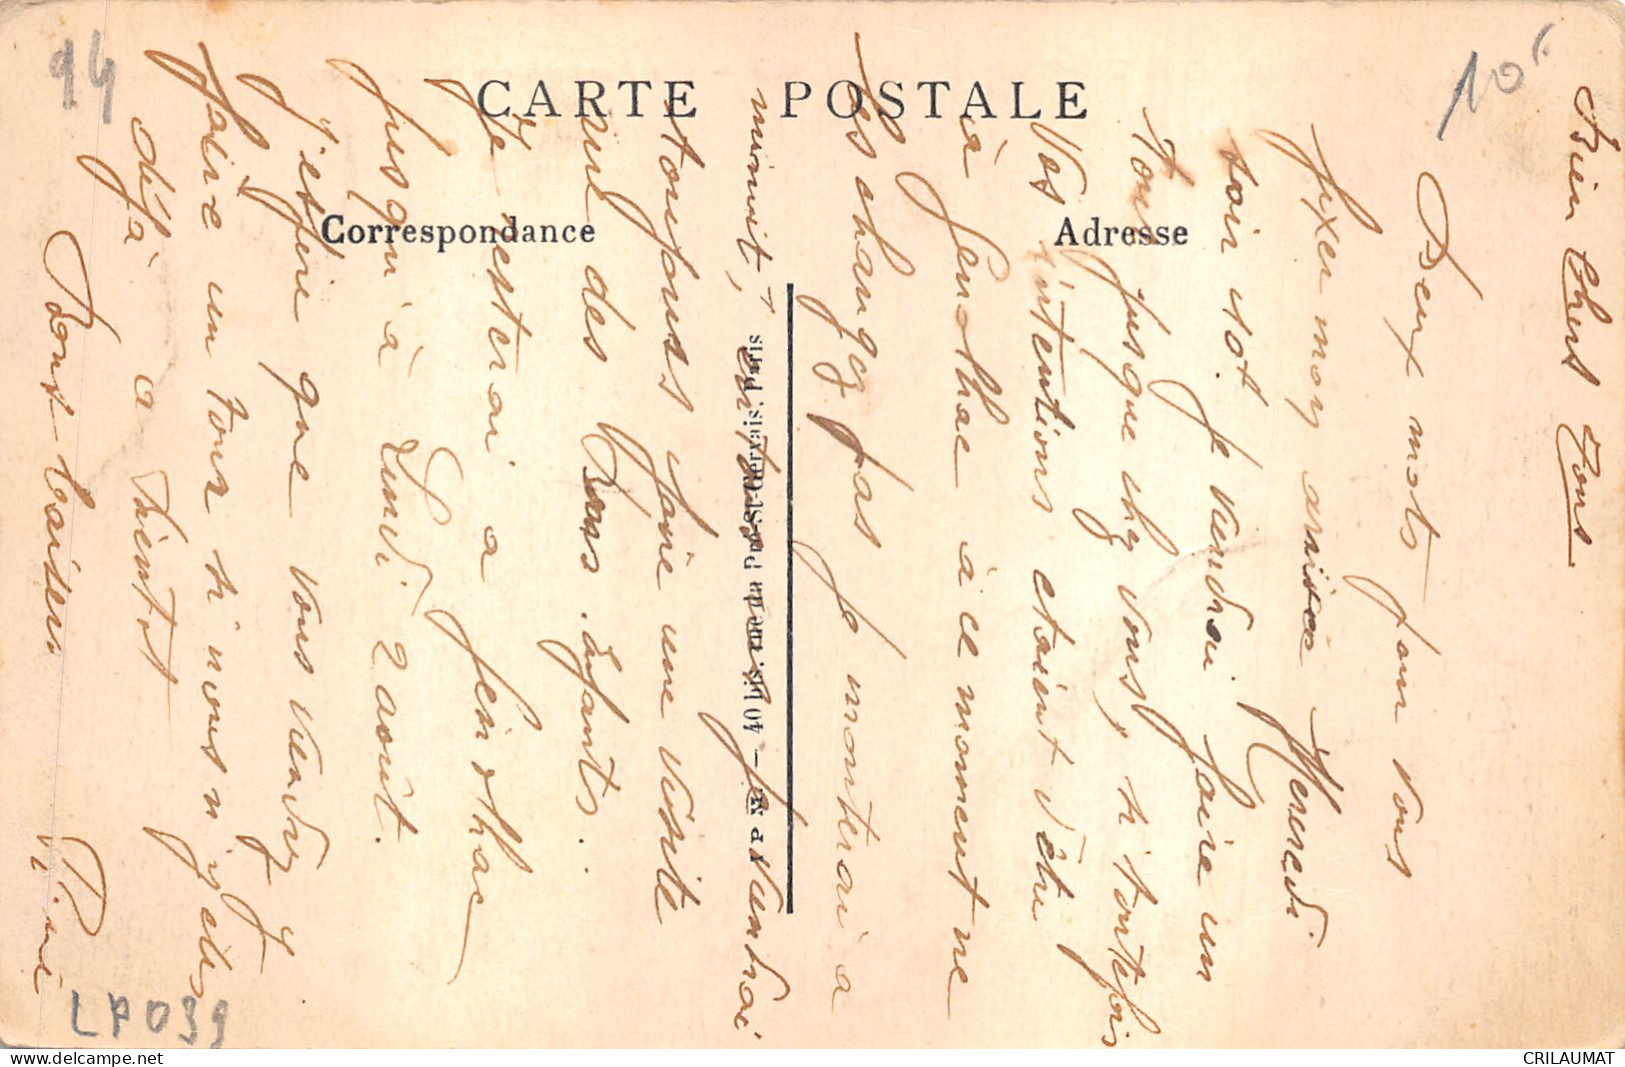 CARTE POSTALE
Correspondance
Adresse
94
10
Bien Chers Tous
Deux mots pour vous
fixer mon arrivée Mercredi
soir 10t. Je viendrai faire un
tour jusque chez vous, si toutefois
Vos intentions étaient d'être
à Gensthac à ce moment ne
les changez pas je monterai à
minuit, ou bien je viendrai
toujours faire une visite
une des
Je resterai à Gensthac
jusqu'à Lundi 2 août.
J'espère que vous viendrez
faire un tour si vous n'y êtes
déjà à Bientôt
Bons baisers
40 bis. rue du Pré-St-Gervais. Paris
LP039
CRILAUMAT